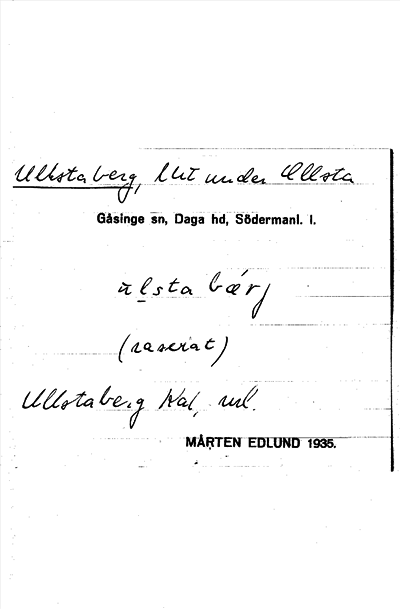 Ullstaberg, lht under Ullsta
Gåsinge sn, Daga hd, Södermanl. l.
ulsta bærj
(raserat)
Ullstaberg Kal, ml.
MÅRTEN EDLUND 1935.